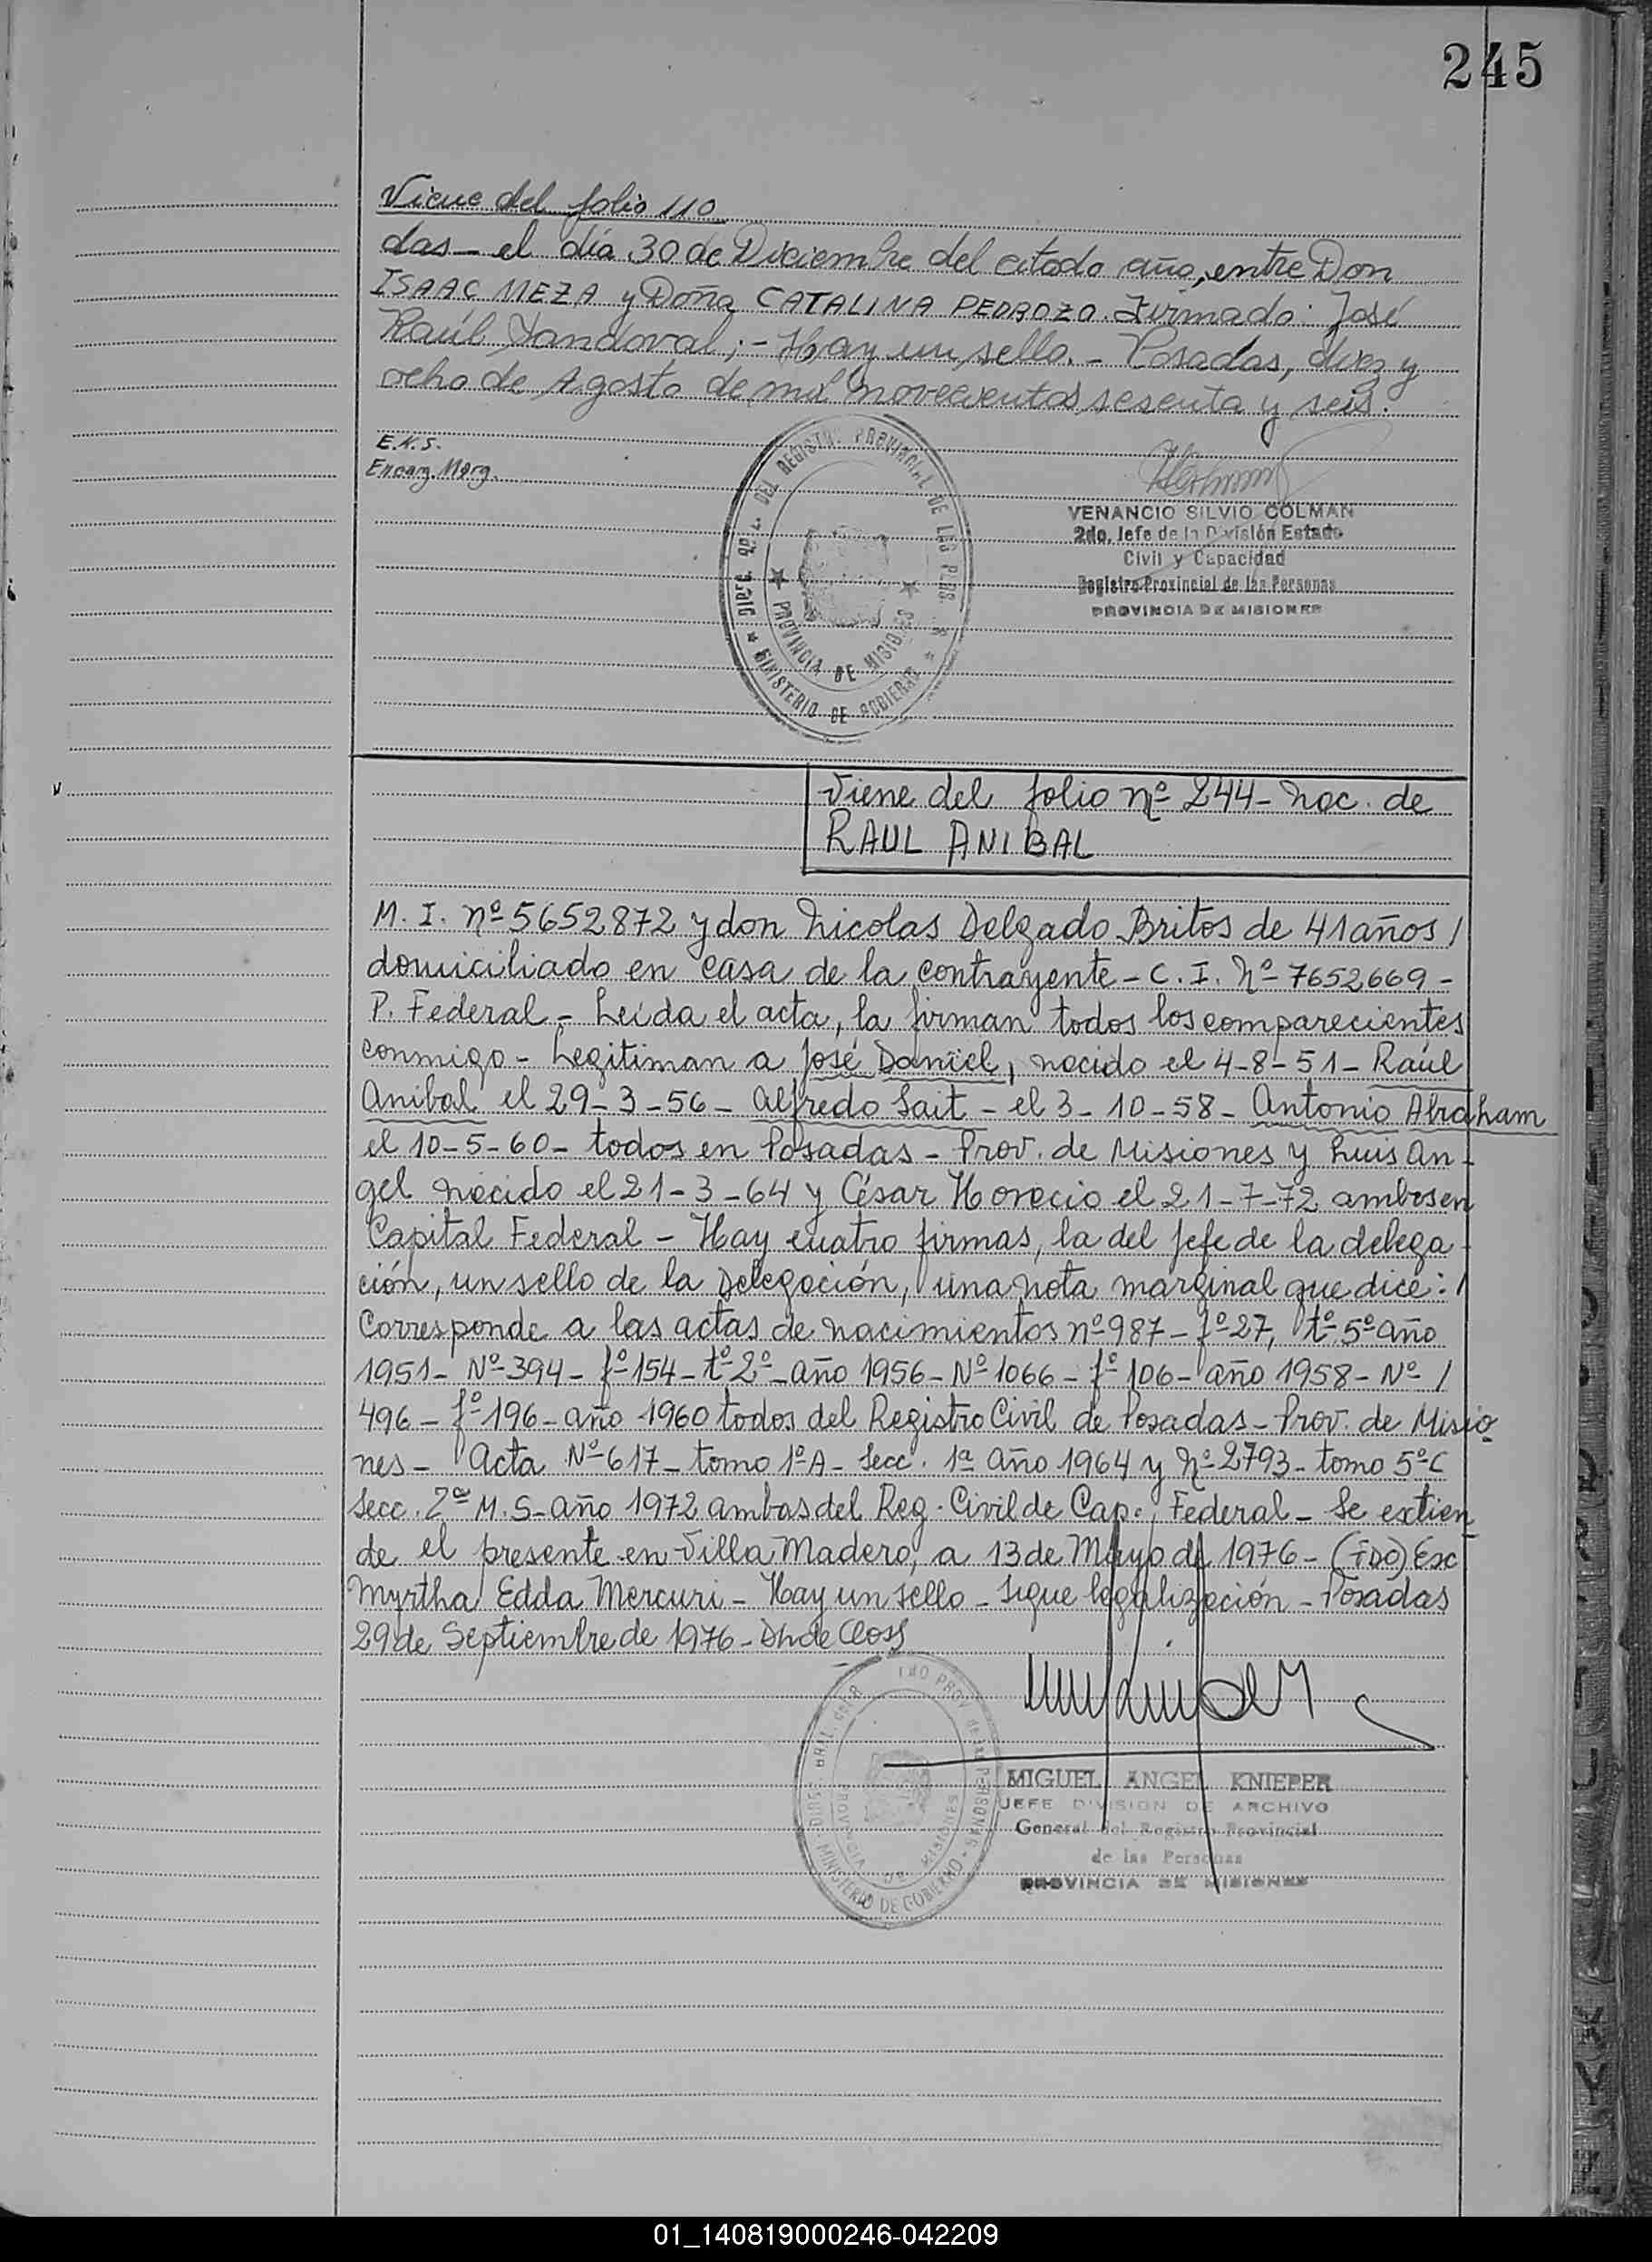 245
Viene del folio 110
das - el día 30 de Diciembre del citado año, entre Don
ISAAC MEZA y Doña CATALINA PEDROZO. Firmado: José
Raúl Sandoval; - Hay un sello. - Posadas, diez y
ocho de Agosto de mil novecientos sesenta y seis.
E.N.S.
Encarg. Marg.
VENANCIO SILVIO COLMAN
2do. Jefe de la División Estado
Civil y Capacidad
Registro Provincial de las Personas
PROVINCIA DE MISIONES
DEL REGISTRO PROVINCIAL DE LAS PERS.
MINISTERIO DE GOBIERNO
PROVINCIA DE MISIONES
Viene del folio nº 244 - Nac. de
RAUL ANIBAL
M. I. nº 5652872 y don Nicolas Delgado Britos de 41 años /
domiciliado en casa de la contrayente - C. I. Nº 7652669 -
P. Federal - Leída el acta, la firman todos los comparecientes
conmigo - Legitiman a José Daniel, nacido el 4-8-51 - Raúl
Anibal el 29-3-56 - Alfredo Sait - el 3-10-58 - Antonio Abraham
el 10-5-60 - todos en Posadas - Prov. de Misiones y Luis An-
gel nacido el 21-3-64 y César Horacio el 21-7-72 ambos en
Capital Federal - Hay cuatro firmas, la del Jefe de la delega-
ción, un sello de la Delegación, una nota marginal que dice: /
Corresponde a las actas de nacimientos nº 987 - fº 27, tº 5º año
1951 - Nº 394 - fº 154 - tº 2º - año 1956 - Nº 1066 - fº 106 - año 1958 - Nº /
496 - fº 196 - año 1960 todos del Registro Civil de Posadas - Prov. de Misio-
nes - Acta Nº 617 - tomo 1º A - Secc. 1ª año 1964 y Nº 2793 - tomo 5º C
Secc. 2ª M. S - año 1972 ambas del Reg. Civil de Cap. Federal - Se extien-
de el presente en Villa Madero, a 13 de Mayo de 1976 - (FDO) Esc
Myrtha Edda Mercuri - Hay un sello - Sigue legalización - Posadas
29 de Septiembre de 1976 - Dh de Closs
MIGUEL ANGEL KNIEPER
JEFE DIVISION DE ARCHIVO
General del Registro Provincial
de las Personas
PROVINCIA DE MISIONES
PROV. de las PERSONAS
MINISTERIO DE GOBIERNO
PROVINCIA DE MISIONES
01_140819000246-042209